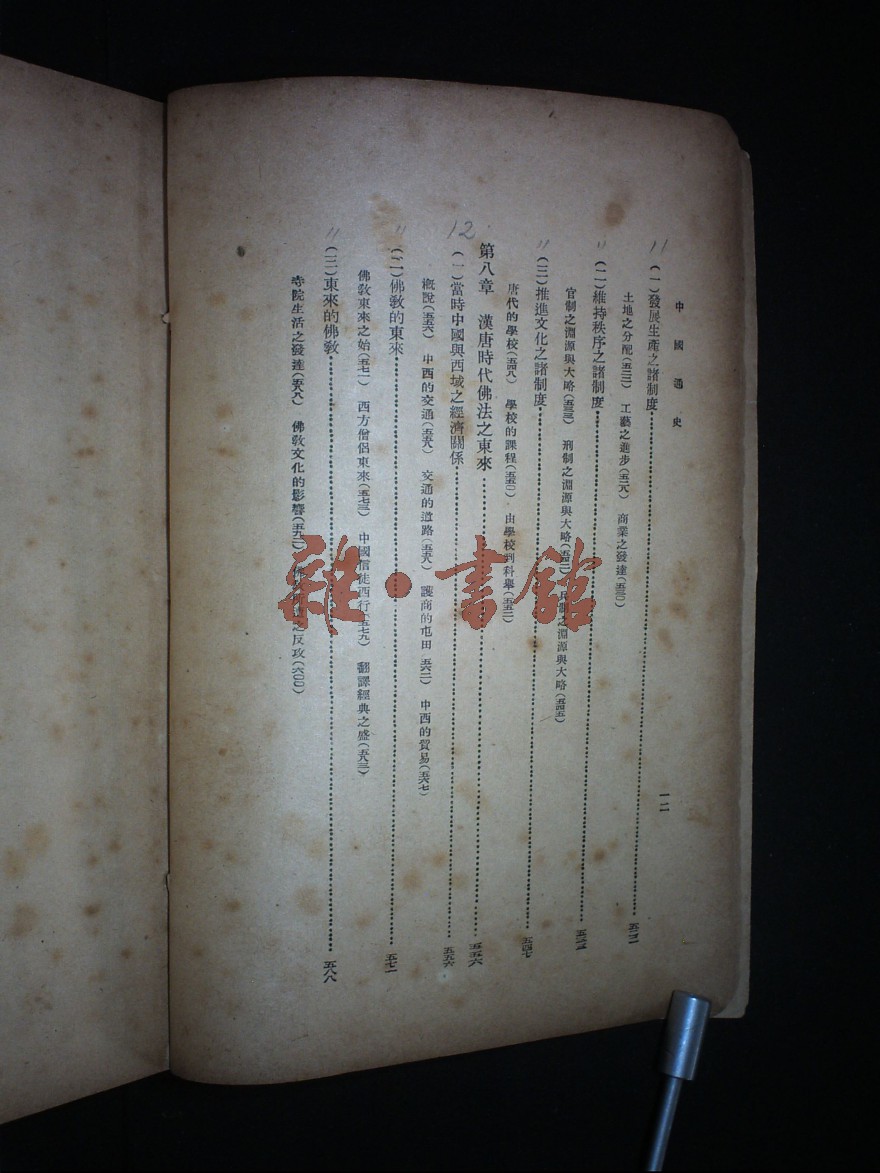 中國通史
一二
11
(一)發展生產之諸制度 五二二
土地之分配(五二二) 工藝之進步(五二八) 商業之發達(五三〇)
"
(二)維持秩序之諸制度 五三三
官制之淵源與大略(五三三) 刑制之淵源與大略(五四二) 兵制之淵源與大略(五四五)
"
(三)推進文化之諸制度 五四七
唐代的學校(五四八) 學校的課程(五五〇) 由學校到科舉(五五二)
第八章 漢唐時代佛法之東來 五五六
12
(一)當時中國與西域之經濟關係 五五六
概說(五五六) 中西的交通(五五八) 交通的道路(五五八) 護商的屯田(五六二) 中西的貿易(五六七)
"
(二)佛教的東來 五七一
佛教東來之始(五七一) 西方僧侶東來(五七三) 中國信徒西行(五七九) 翻譯經典之盛(五八三)
"
(三)東來的佛教 五八八
寺院生活之發達(五八八) 佛教文化的影響(五九二) 之反攻(六〇〇)
雜·書館